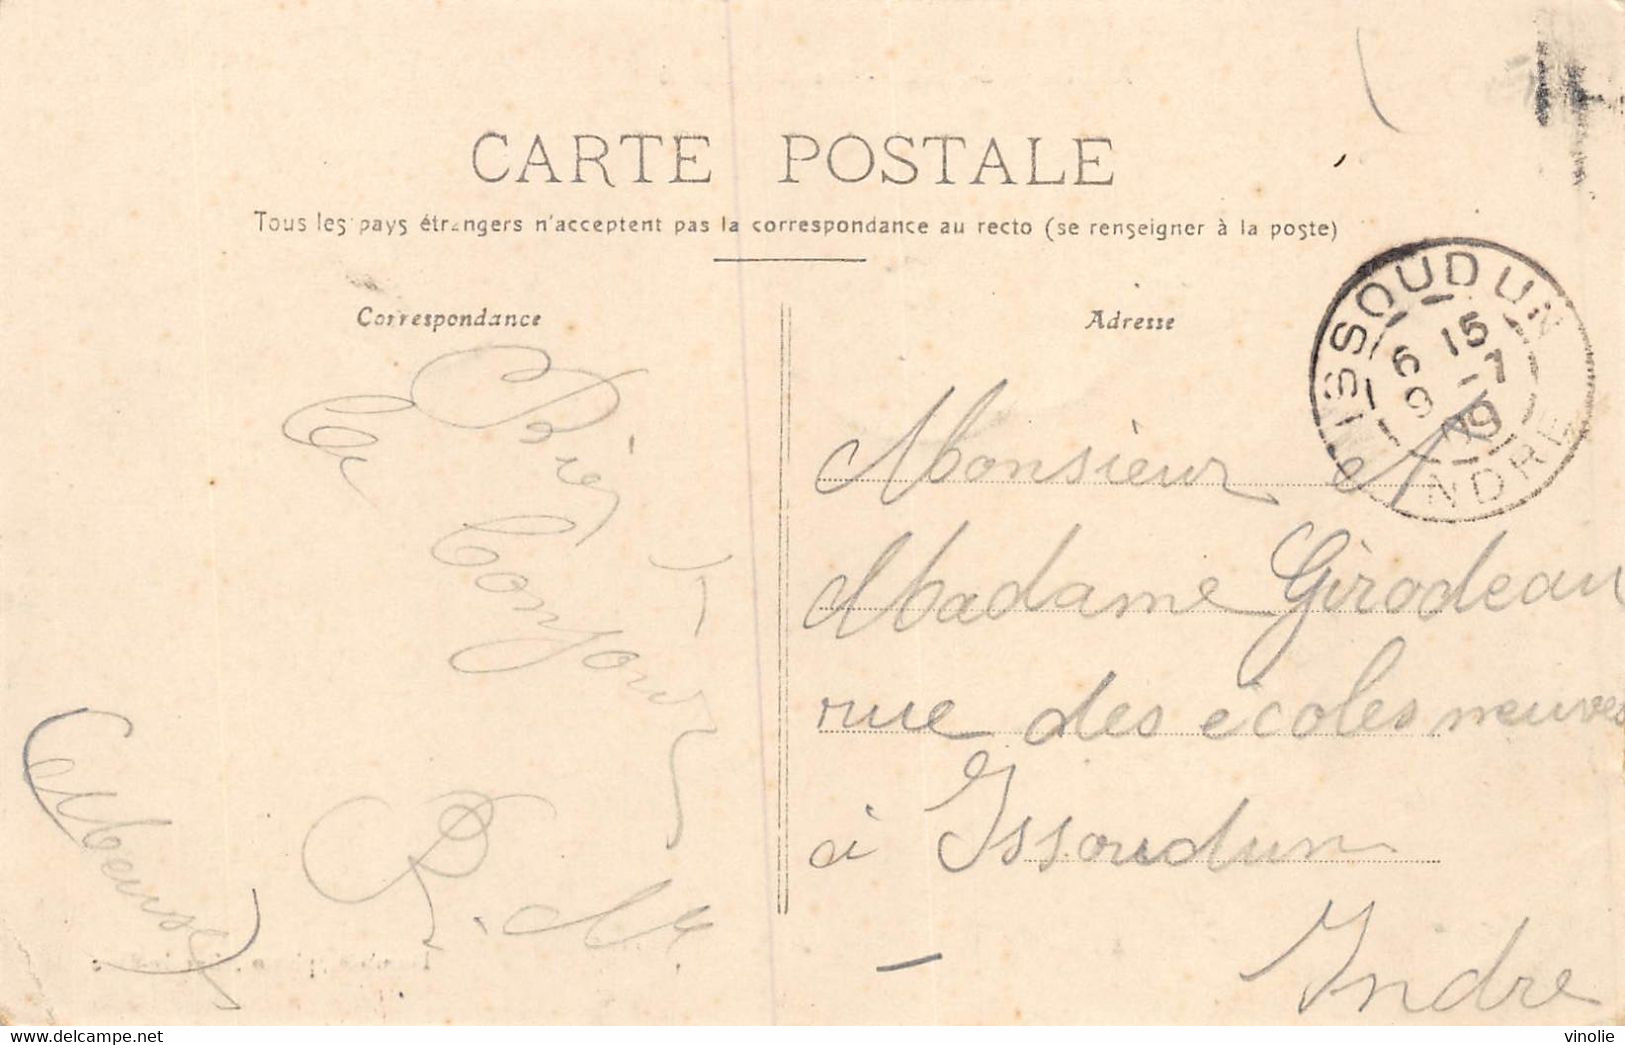 CARTE POSTALE
Tous les pays étrangers n'acceptent pas la correspondance au recto (se renseigner à la poste)
Correspondance
Adresse
ISSOUDUN
6 15
9 -7
09
INDRE
Monsieur et
Madame Girodeau
rue des écoles neuves
à Issoudun
Indre
Bonjour
R. M
delcampe.net
vinolie